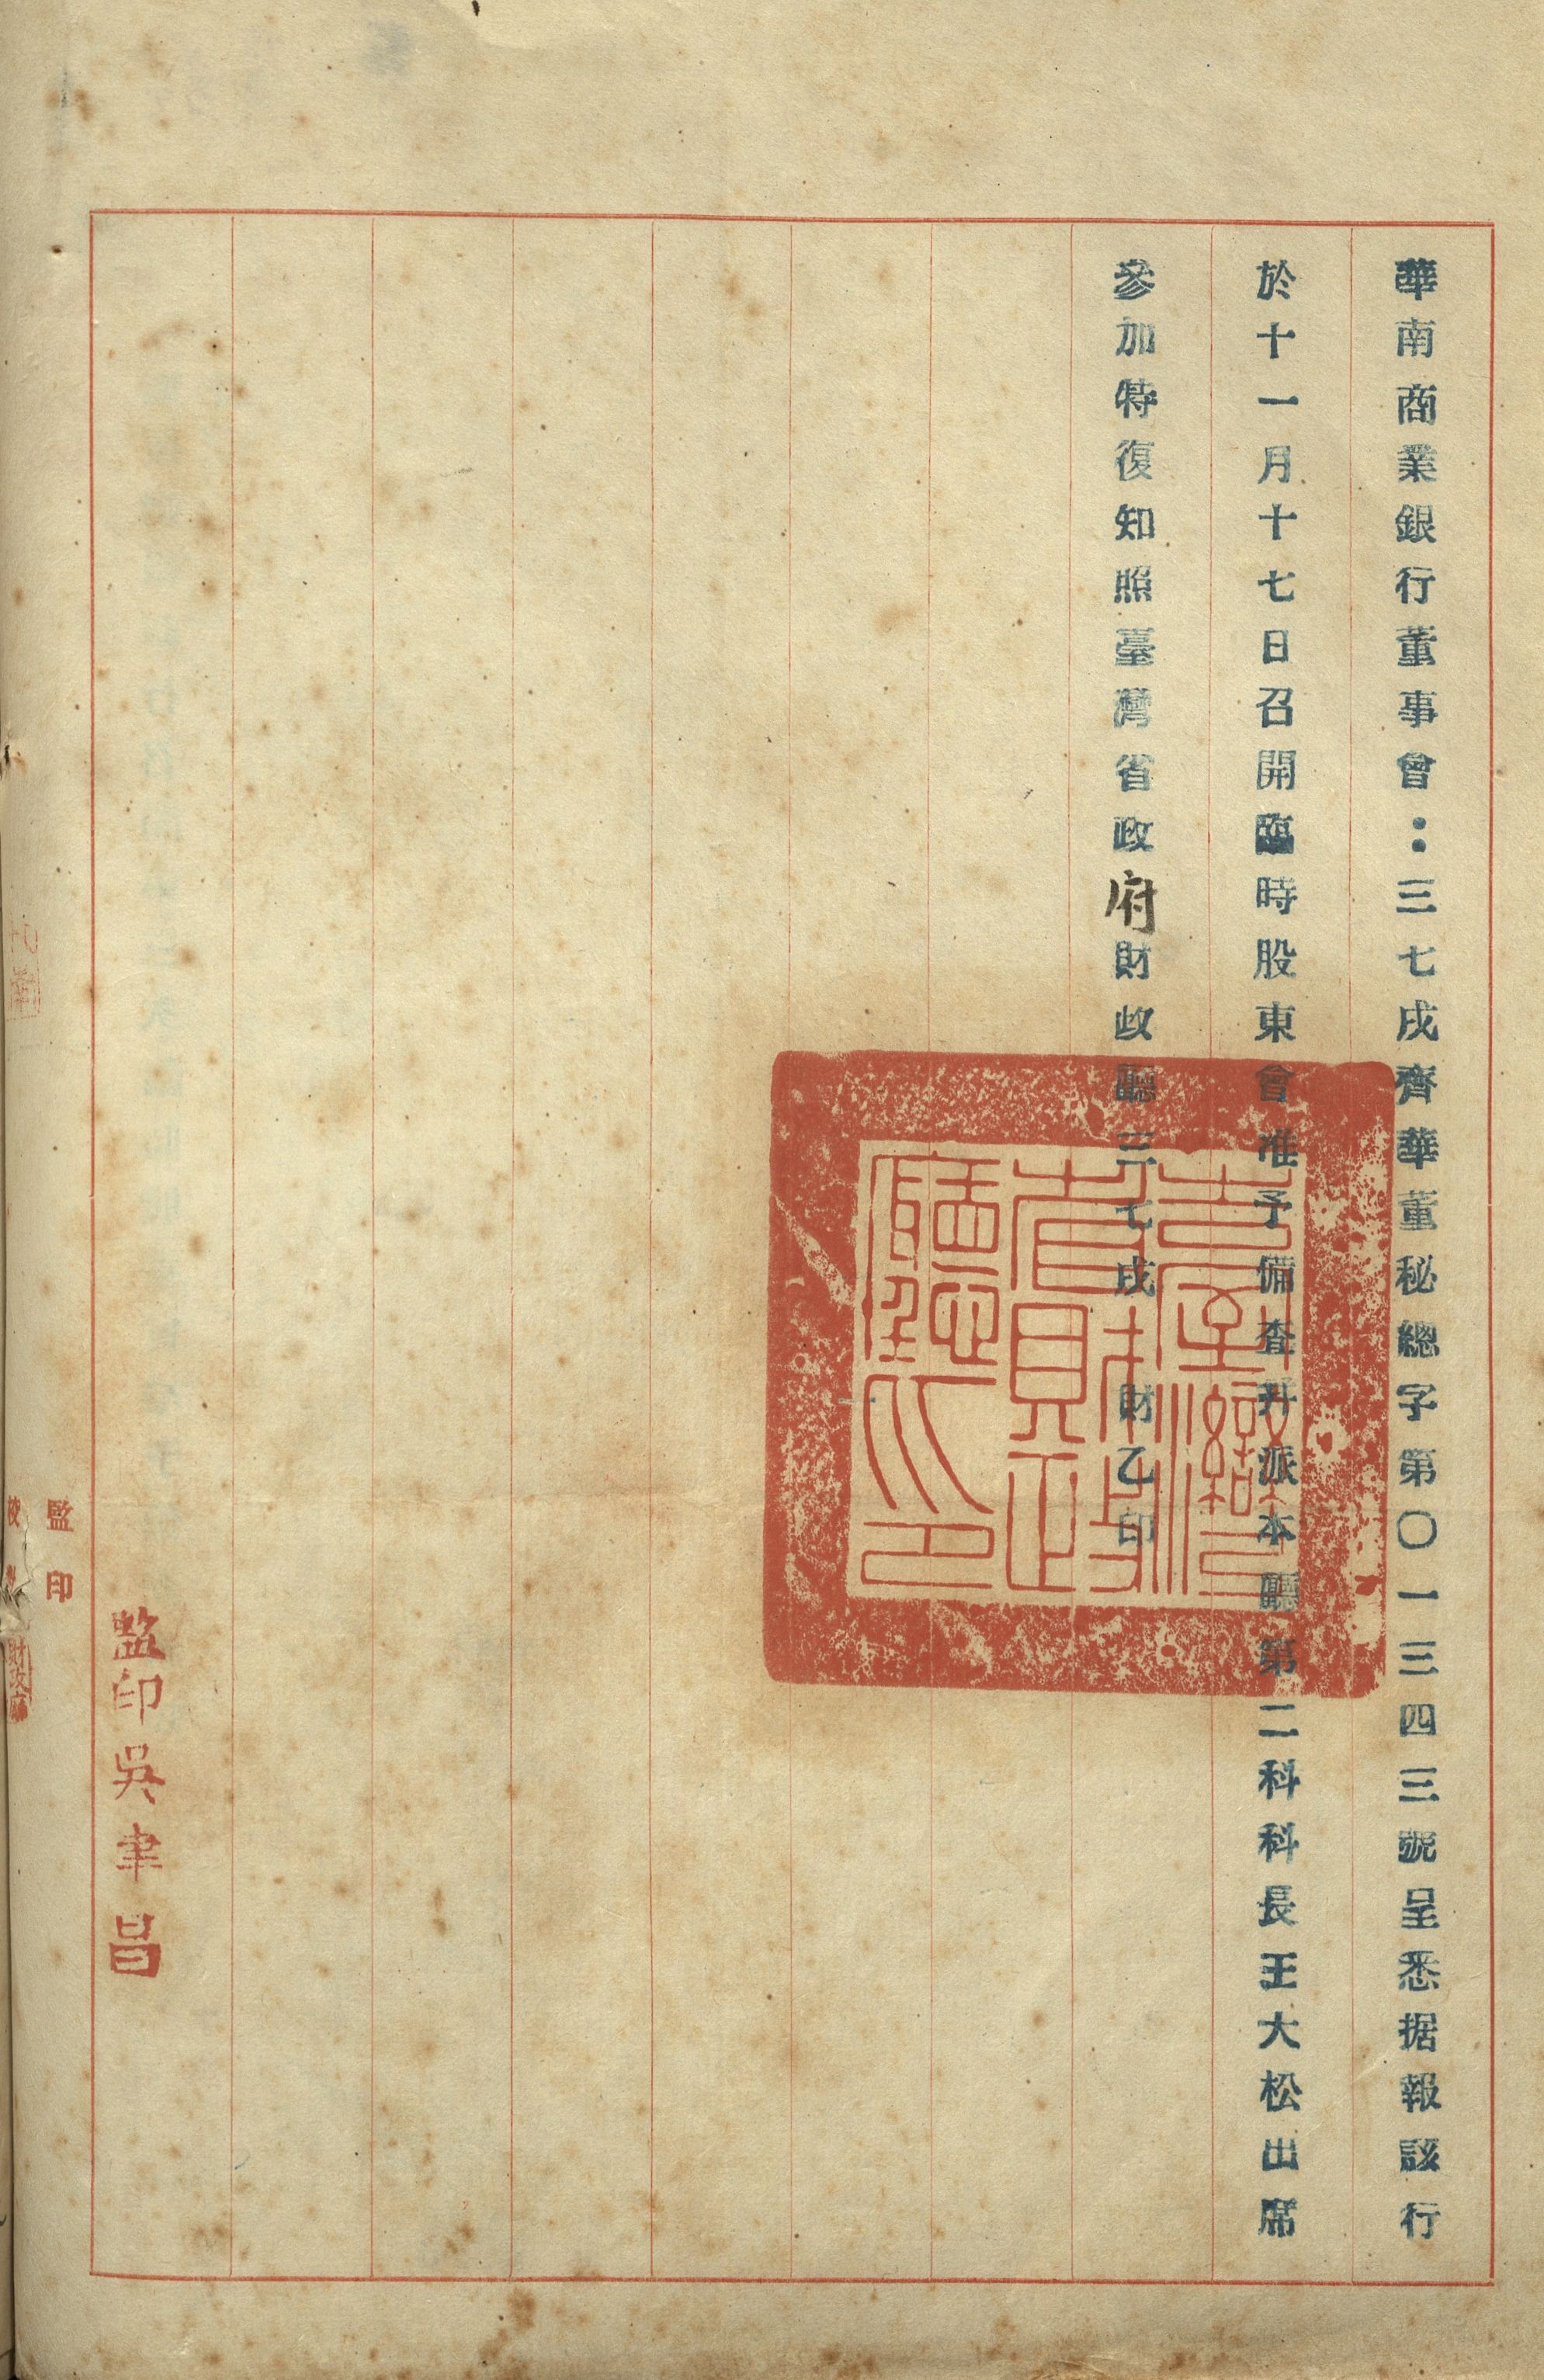 華南商業銀行董事會：三七戌齊華董秘總字第〇一三四三號呈悉据報該行
於十一月十七日召開臨時股東會准予備查并派本廳第二科科長王大松出席
參加特復知照臺灣省政府財政廳三七戌 財乙印
臺灣省財政廳印
監印吳聿昌
監印